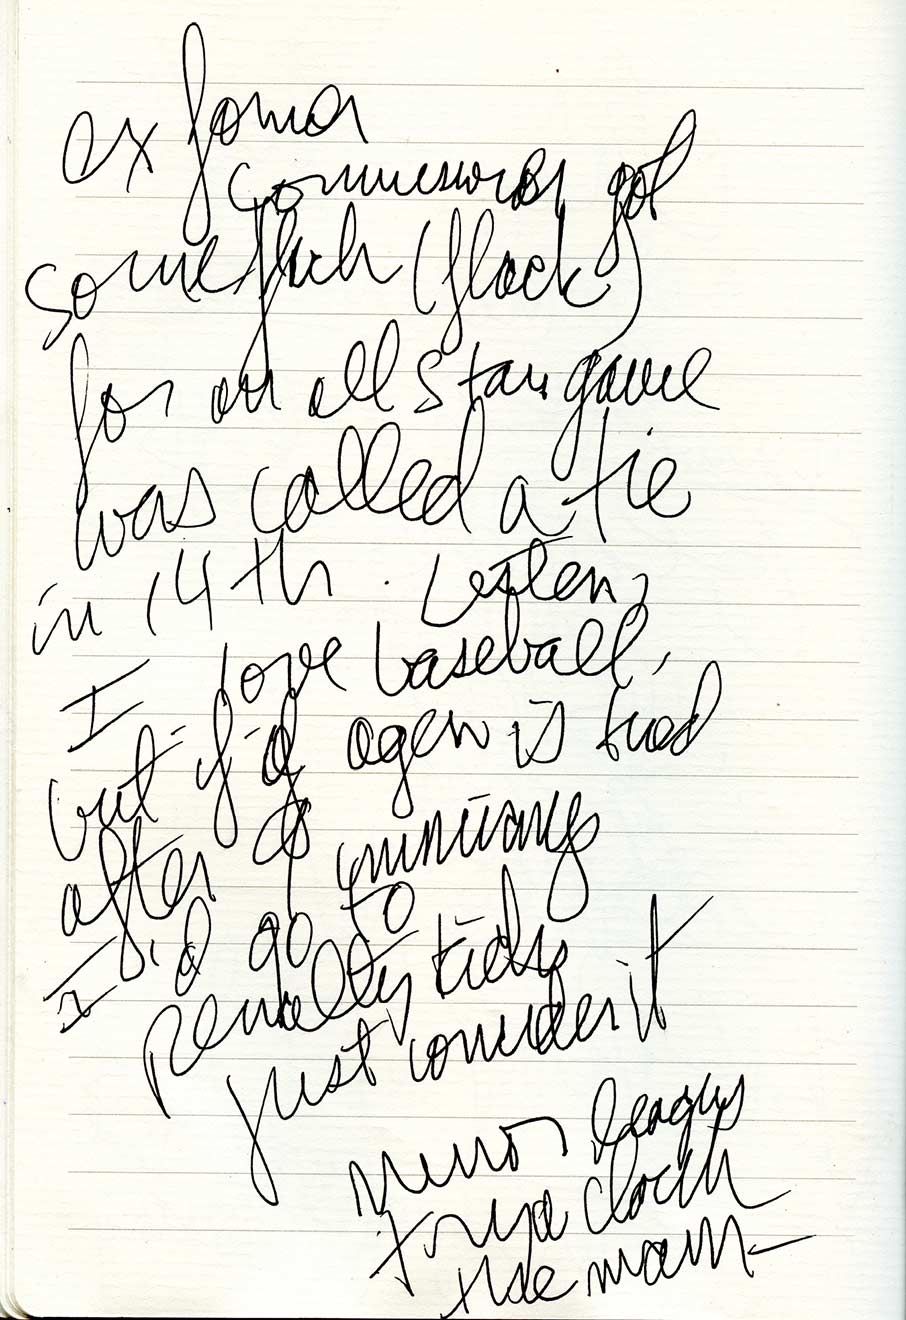 ex former
commissioner got
some flich (flack)
for an all star game
was called a tie
in 14th. Listen,
I love baseball,
but if a game is tied
after
I'd go to
penalty kicks
just consider it
minor leagues
try a clock
the man